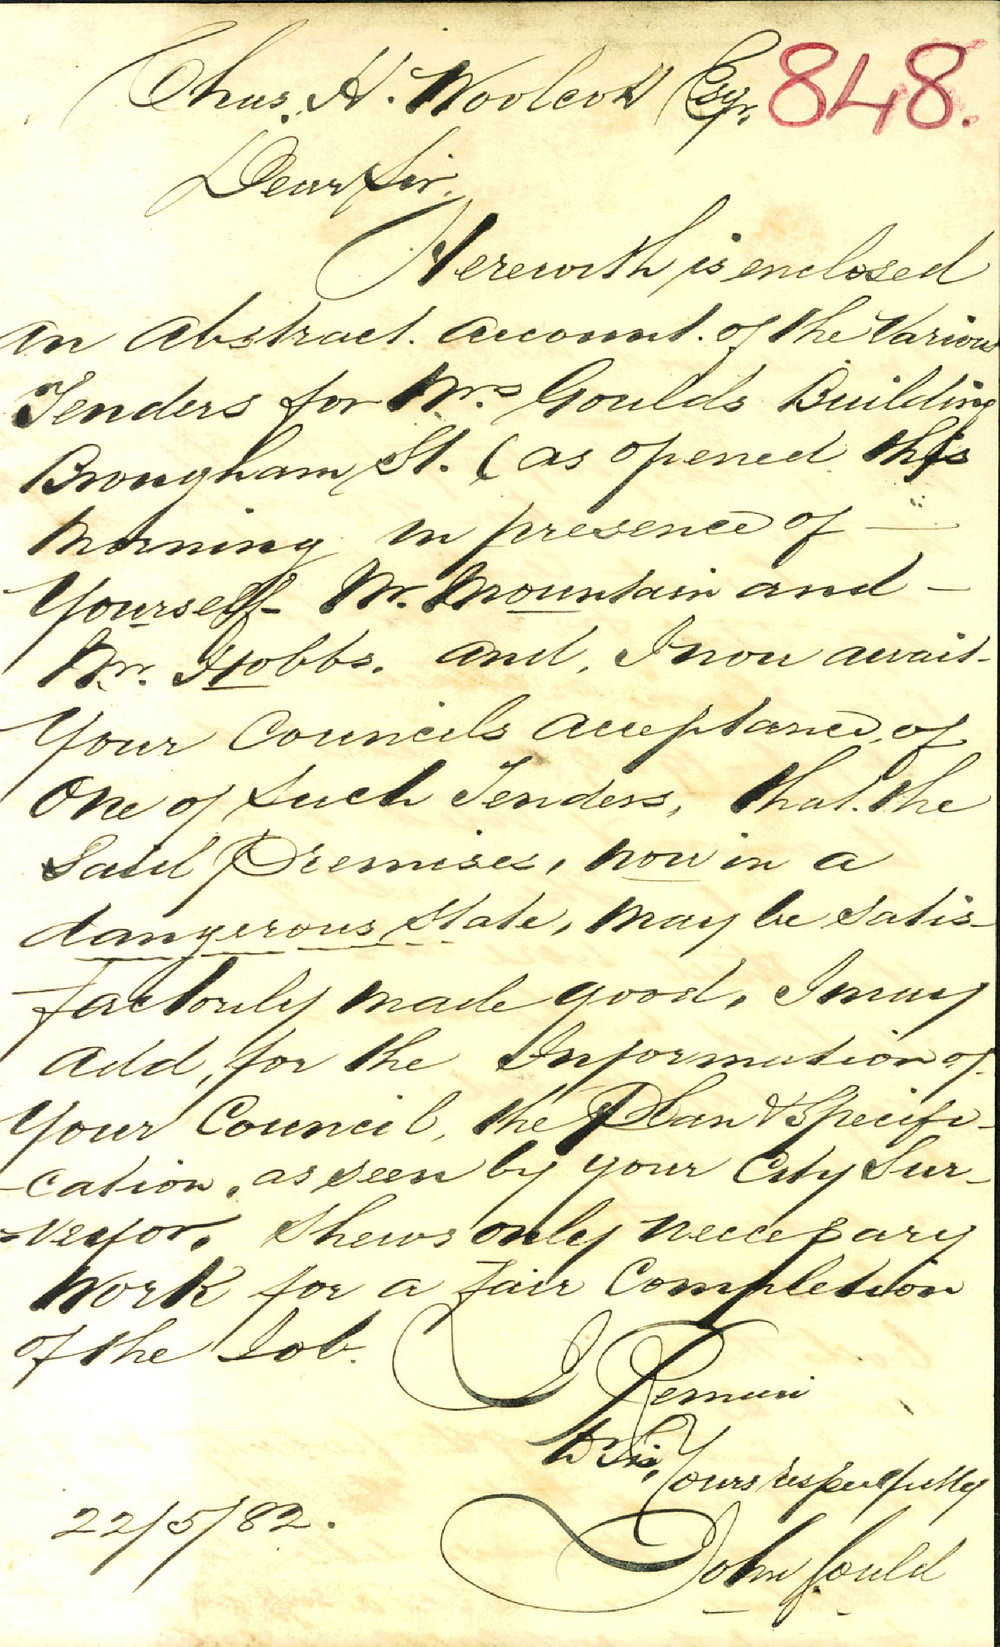 Chas. H. Woolcott Esqr. 848.
Dear Sir.
Herewith is enclosed
an Abstract. account. of the Various
Tenders for Mrs Goulds Building
Brougham St. (as opened this
Morning in presence of —
Yourself Mr. Mountain and —
Mr. Hobbs. and, I now await-
Your Councils acceptance, of
One of such Tenders, that. the
Said Premises, now in a
dangerous State, may be satis-
factorily made good. I may
add, for the Information of
Your Council, the Plan & Specifi-
-cation, as seen by your City Sur-
-veyor, shews only necessary
Work for a fair Completion
of the Job.
I Remain
Dr Sir,
Yours respectfully
John Gould
22/5/82.